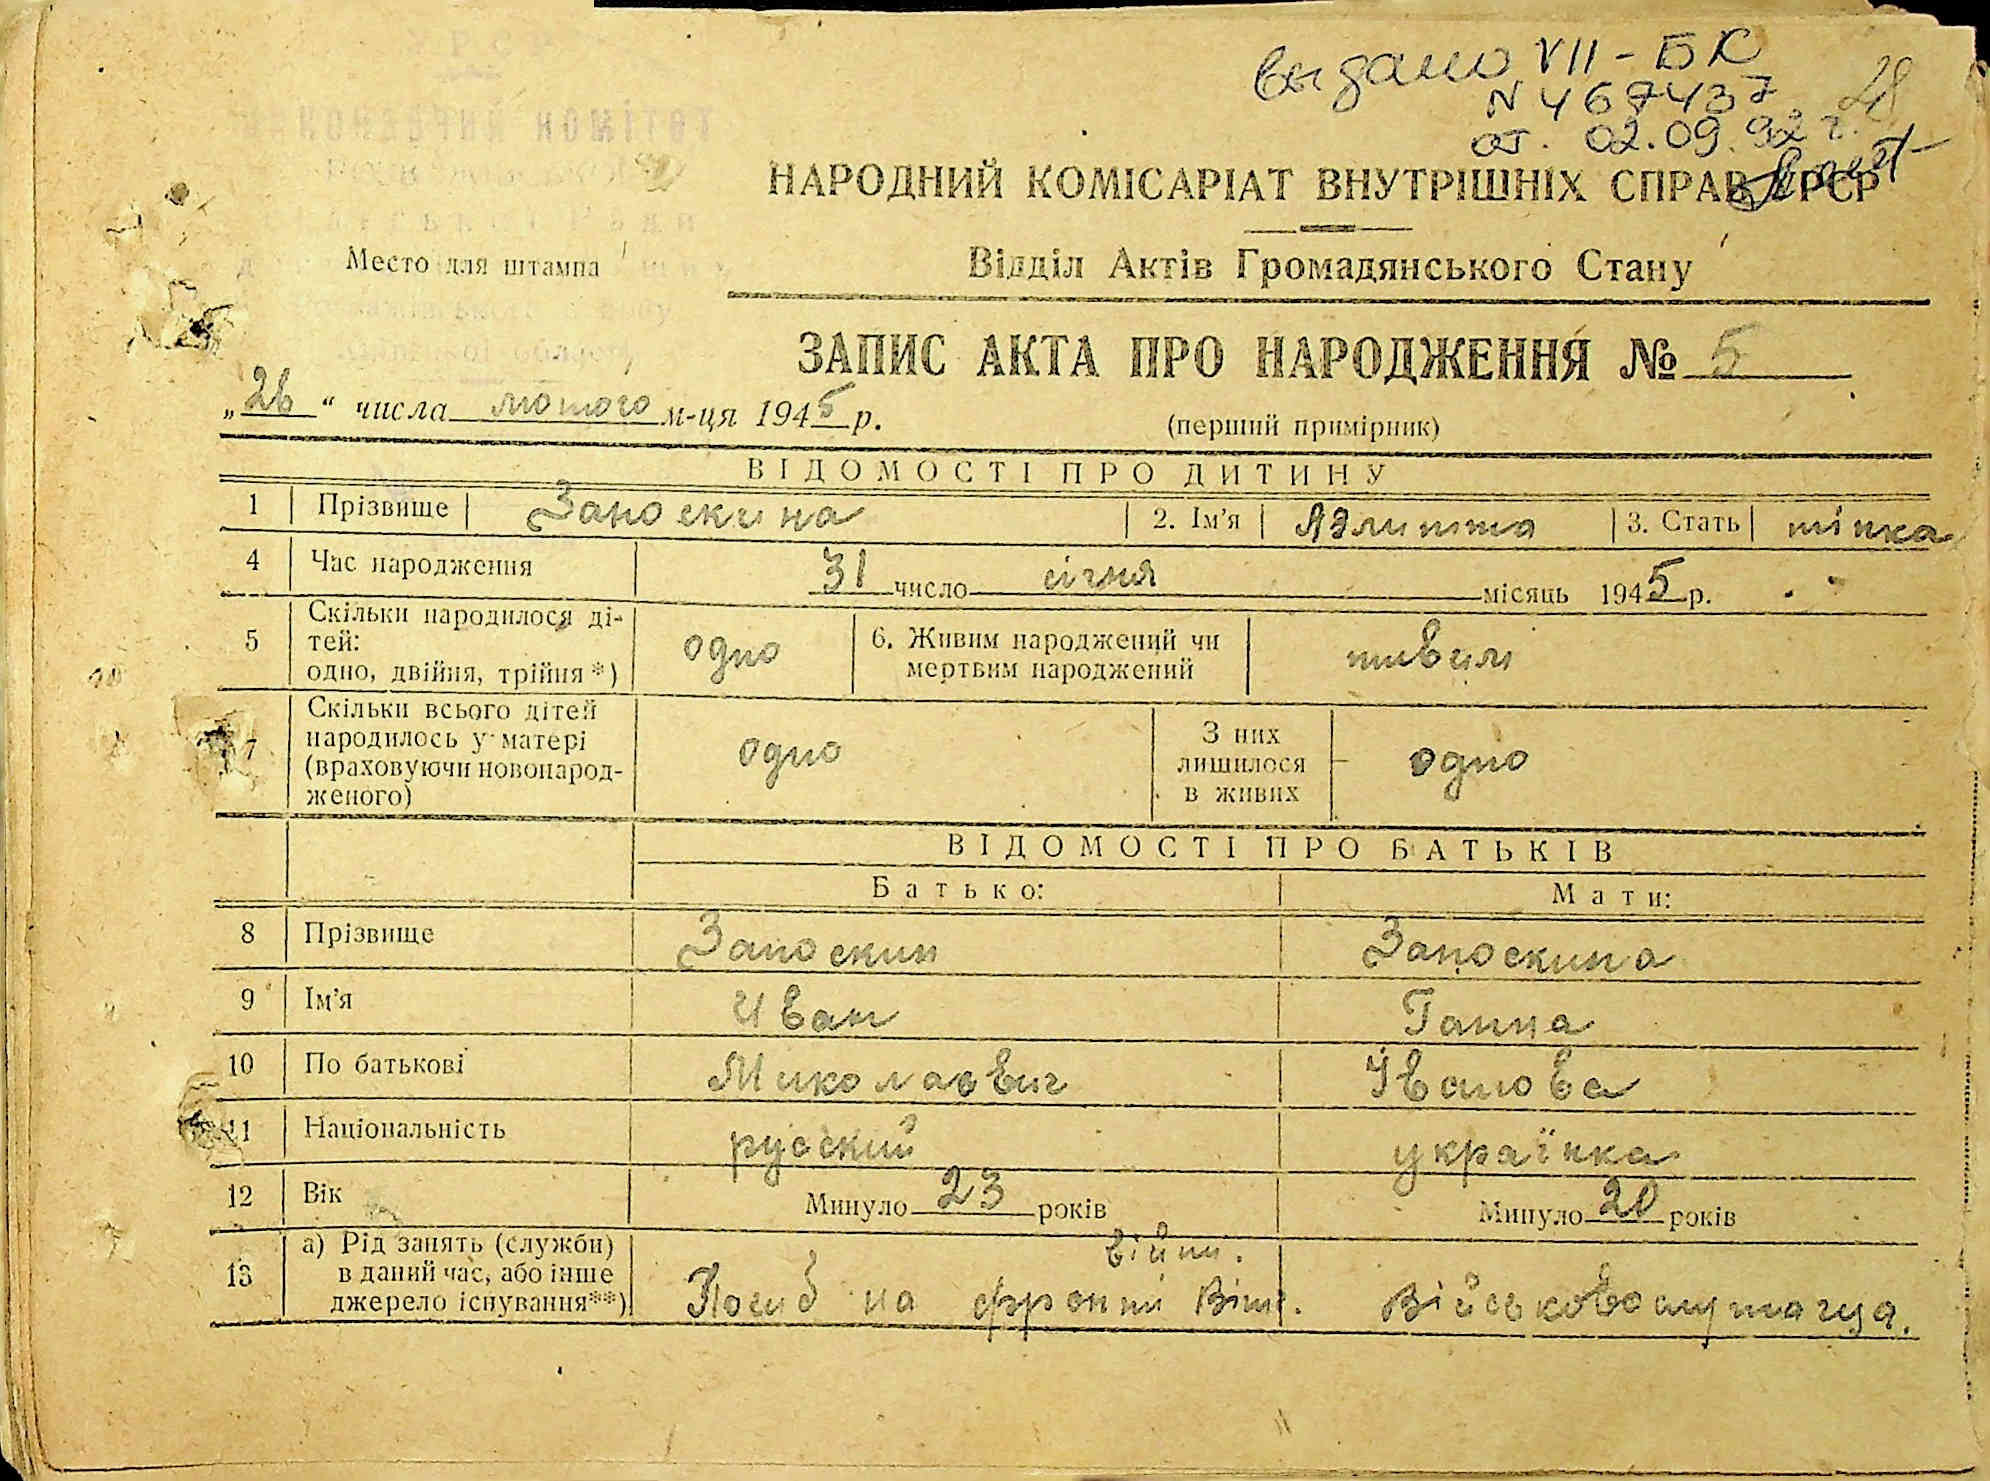 выдано VII-БК
N 467437
28
от. 02.09.92 г.
НАРОДНИЙ КОМІСАРІАТ ВНУТРІШНІХ СПРАВ УРСР
Место для штампа
Відділ Актів Громадянського Стану
ЗАПИС АКТА ПРО НАРОДЖЕННЯ № 5
„26“ числа лютого м-ця 1945 р.
(перший примірник)
ВІДОМОСТІ ПРО ДИТИНУ
1 Прізвище Запоскина 2. Ім'я Аэлитта 3. Стать жінка
4 Час народження 31 число січня місяць 1945 р.
5 Скільки народилося дітей: одно, двійня, трійня*) одно 6. Живим народжений чи мертвим народжений живим
7 Скільки всього дітей народилось у матері (враховуючи новонародженого) одно З них лишилося в живих одно
ВІДОМОСТІ ПРО БАТЬКІВ
Батько: Мати:
8 Прізвище Запоскин Запоскина
9 Ім'я Иван Ганна
10 По батькові Миколаєвич Івановa
11 Національність русский українка
12 Вік Минуло 23 років Минуло 20 років
13 а) Рід занять (служби) в даний час, або інше джерело існування**) на фронті Вітч. війни. Військовослужачая.